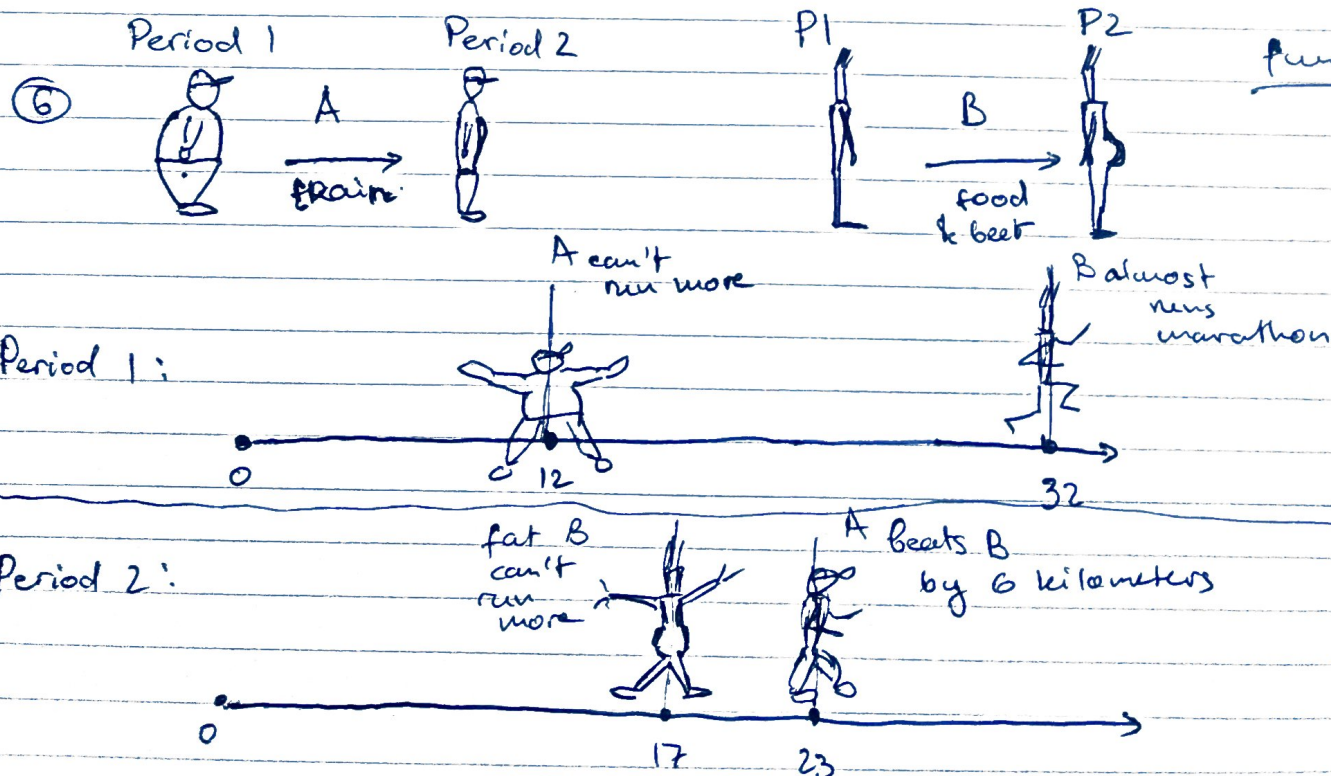 Period 1 Period 2 P1 P2
6 A B
tRain food
& beet
A can't
run more
B almost
runs
marathon
Period 1:
0 12 32
Period 2:
fat B
can't
run
more
A beats B
by 6 kilometers
0 17 23